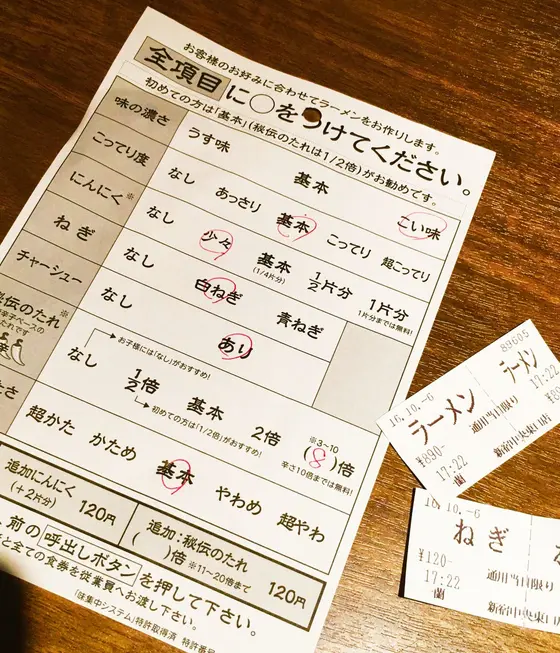 お客様のお好みに合わせてラーメンをお作りします。
全項目に○をつけてください。
初めての方は「基本」(秘伝のたれは1/2倍)がお勧めです。
味の濃さ うす味 基本 こい味
こってり度 なし あっさり 基本 こってり 超こってり
にんにく※ なし 少々 基本 (1/4片分) 1/2片分 1片分
1片分までは無料!
ねぎ なし 白ねぎ 青ねぎ
チャーシュー なし あり
秘伝のたれ※
辛子ベースの
たれです
お子様には「なし」がおすすめ!
なし 1/2倍 基本 2倍 ※3~10 (8)倍
初めての方は「1/2倍」がおすすめ! 辛さ10倍までは無料!
たさ 超かた かため 基本 やわめ 超やわ
追加にんにく (+2片分) 120円
追加:秘伝のたれ ( )倍 ※11~20倍まで 120円
前の呼出しボタンを押して下さい。
と全ての食券を従業員へお渡し下さい。
「味集中システム」特許取得済 特許番号
16.10.-6 89605
ラーメン ラーメン
¥890- 17:22
17:22 通用当日限り
16.10.-6
ねぎ
¥120-
17:22 通用当日限り